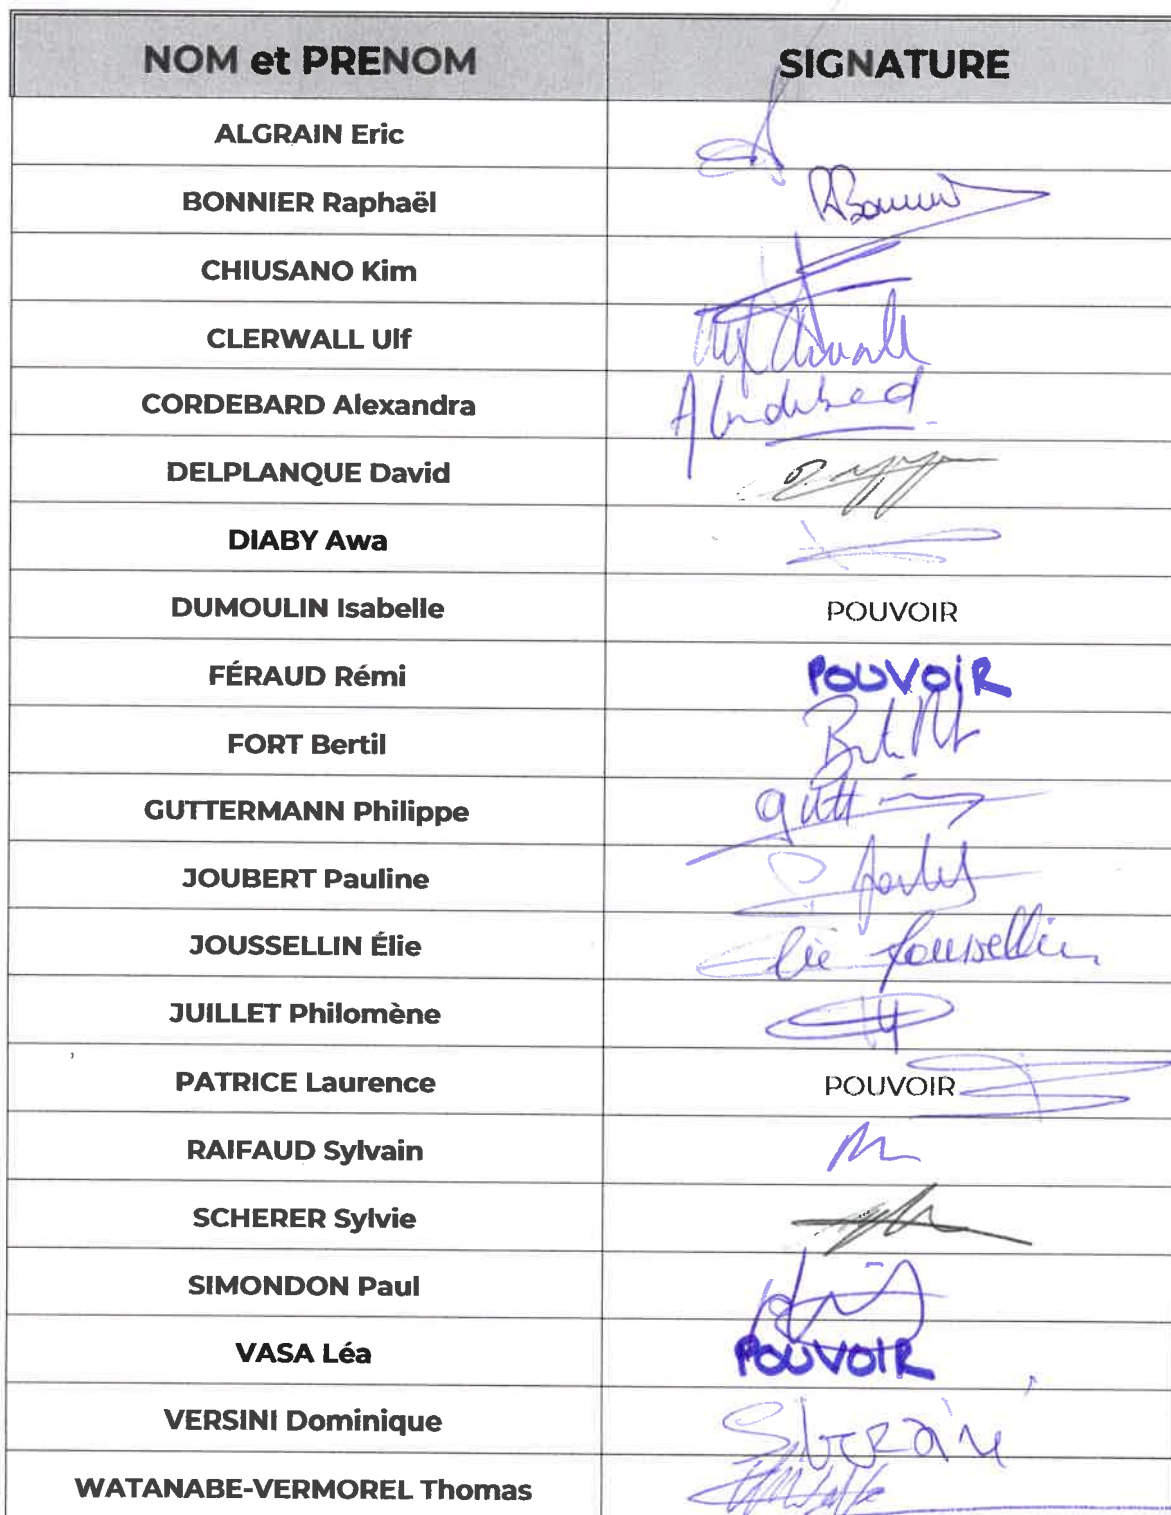 NOM et PRENOM SIGNATURE
ALGRAIN Eric
BONNIER Raphaël RBonnier
CHIUSANO Kim
CLERWALL Ulf Ulf Clerwall
CORDEBARD Alexandra A Cordebard
DELPLANQUE David
DIABY Awa
DUMOULIN Isabelle POUVOIR
FÉRAUD Rémi POUVOIR
FORT Bertil
GUTTERMANN Philippe
JOUBERT Pauline
JOUSSELLIN Élie Elie Jousselin
JUILLET Philomène
PATRICE Laurence POUVOIR
RAIFAUD Sylvain
SCHERER Sylvie
SIMONDON Paul
VASA Léa POUVOIR
VERSINI Dominique
WATANABE-VERMOREL Thomas